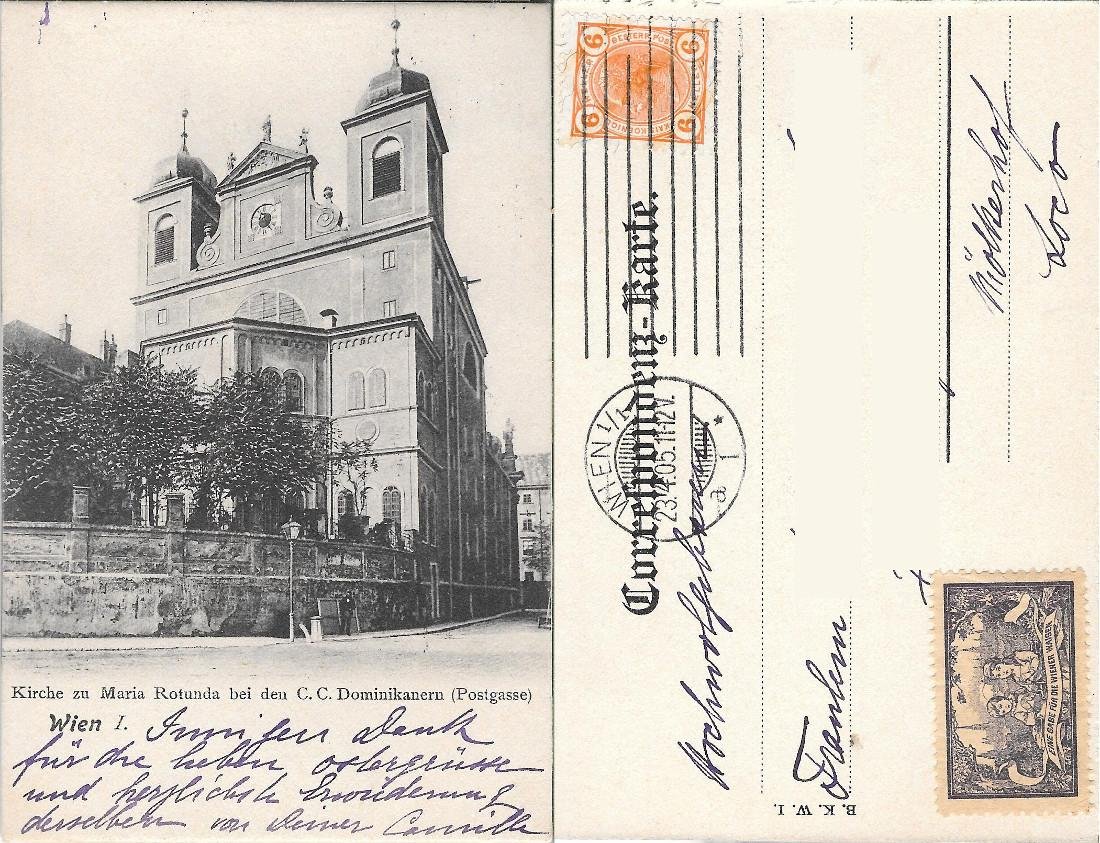 Kirche zu Maria Rotunda bei den C. C. Dominikanern (Postgasse)
Wien I.
Innigen Dank
für die lieben Ostergrüsse
und herzlichste Erwiderung
derselben von Deiner Camilla
6 6
OESTERR. POST
KAIS. KÖNIGL.
6 6
Correspondenz-Karte.
WIEN 1/1
23.4.05.11-12V.
* a 1
Hochwohlgeboren
Fräulein
Mölkerhof
Loco
B. K. W. I.
LIEBESGABE FÜR DIE WIENER WAISEN